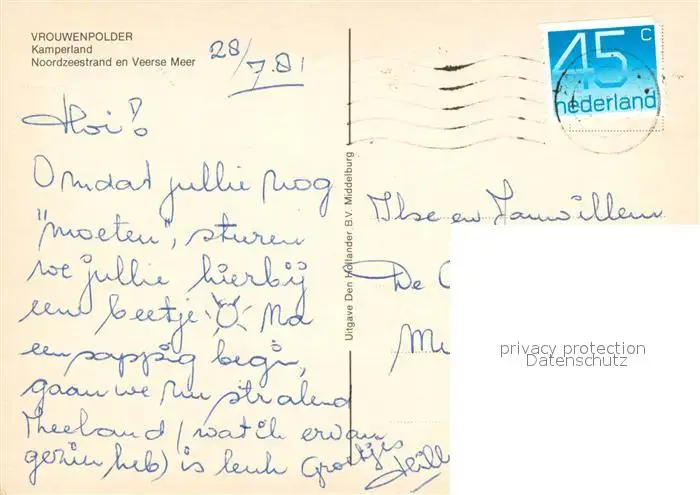 VROUWENPOLDER
Kamperland
Noordzeestrand en Veerse Meer
28/7.81
45 c
nederland
Hoi!
Omdat jullie nog
"moeten", sturen
we jullie hierbij
een beetje Na
een sappig begin,
gaan we nu stralend
Zeeland (wat ik ervan
gezien heb) is leuk Groetjes
Uitgave Den Hollander B.V. Middelburg
Ilse en Janwillem
De
privacy protection
Datenschutz